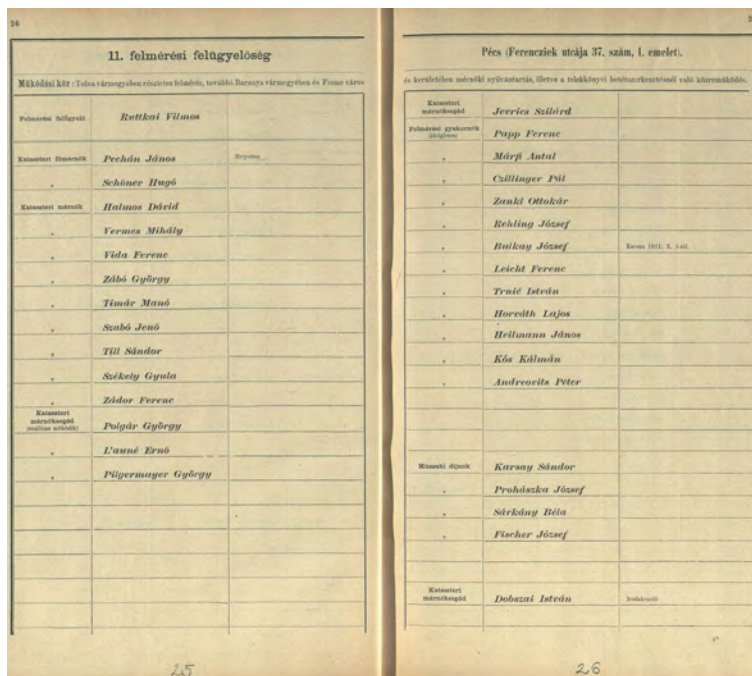 26
11. felmérési felügyelőség
Működési kör: Tolna vármegyében részletes felmérés, továbbá Baranya vármegyében és Fiume város
Felmérési felügyelő Ruttkai Vilmos
Kataszteri főmérnök Pechán János Helyettes
„ Schöner Hugó
Kataszteri mérnök Halmos Dávid
„ Vermes Mihály
„ Vida Ferenc
„ Zábó György
„ Timár Manó
„ Szabó Jenő
„ Till Sándor
„ Székely Gyula
„ Zádor Ferenc
Kataszteri
mérnöksegéd
Polgár György
„ L'auné Ernő
„ Pilgermayer György
25
Pécs (Ferencziek utcája 37. szám, I. emelet).
és kerületében mérnöki nyilvántartás, illetve a telekkönyvi betétszerkesztésnél való közreműködés.
Kataszteri
mérnöksegéd Jevrics Szilárd
Felmérési gyakornok
(ideiglenes) Papp Ferenc
„ Márfi Antal
„ Czillinger Pál
„ Zankl Ottokár
„ Rehling József
„ Buikay József Katona 1911. X. 1-től.
„ Leicht Ferenc
„ Trnić István
„ Horváth Lajos
„ Heilmann János
„ Kós Kálmán
„ Andreovits Péter
Műszaki díjnok Karsay Sándor
„ Prohászka József
„ Sárkány Béla
„ Fischer József
Kataszteri
mérnöksegéd Dobszai István Irodakezelő
26